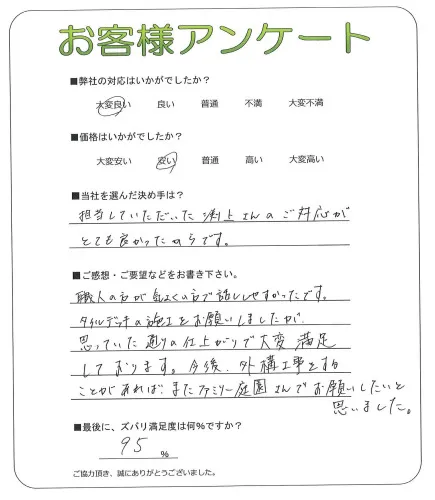 お客様アンケート
■弊社の対応はいかがでしたか？
大変良い 良い 普通 不満 大変不満
■価格はいかがでしたか？
大変安い 安い 普通 高い 大変高い
■当社を選んだ決め手は？
担当していただいた 渕上さんのご対応が
とても良かったからです。
■ご感想・ご要望などをお書き下さい。
職人の方が気さくの方で話しやすかったです。
タイルデッキの施工をお願いしましたが、
思っていた通りの仕上がりで大変満足
しております。今後、外構工事をする
ことがあれば、またファミリー庭園さんでお願いしたいと
思いました。
■最後に、ズバリ満足度は何%ですか？
95 %
ご協力頂き、誠にありがとうございました。